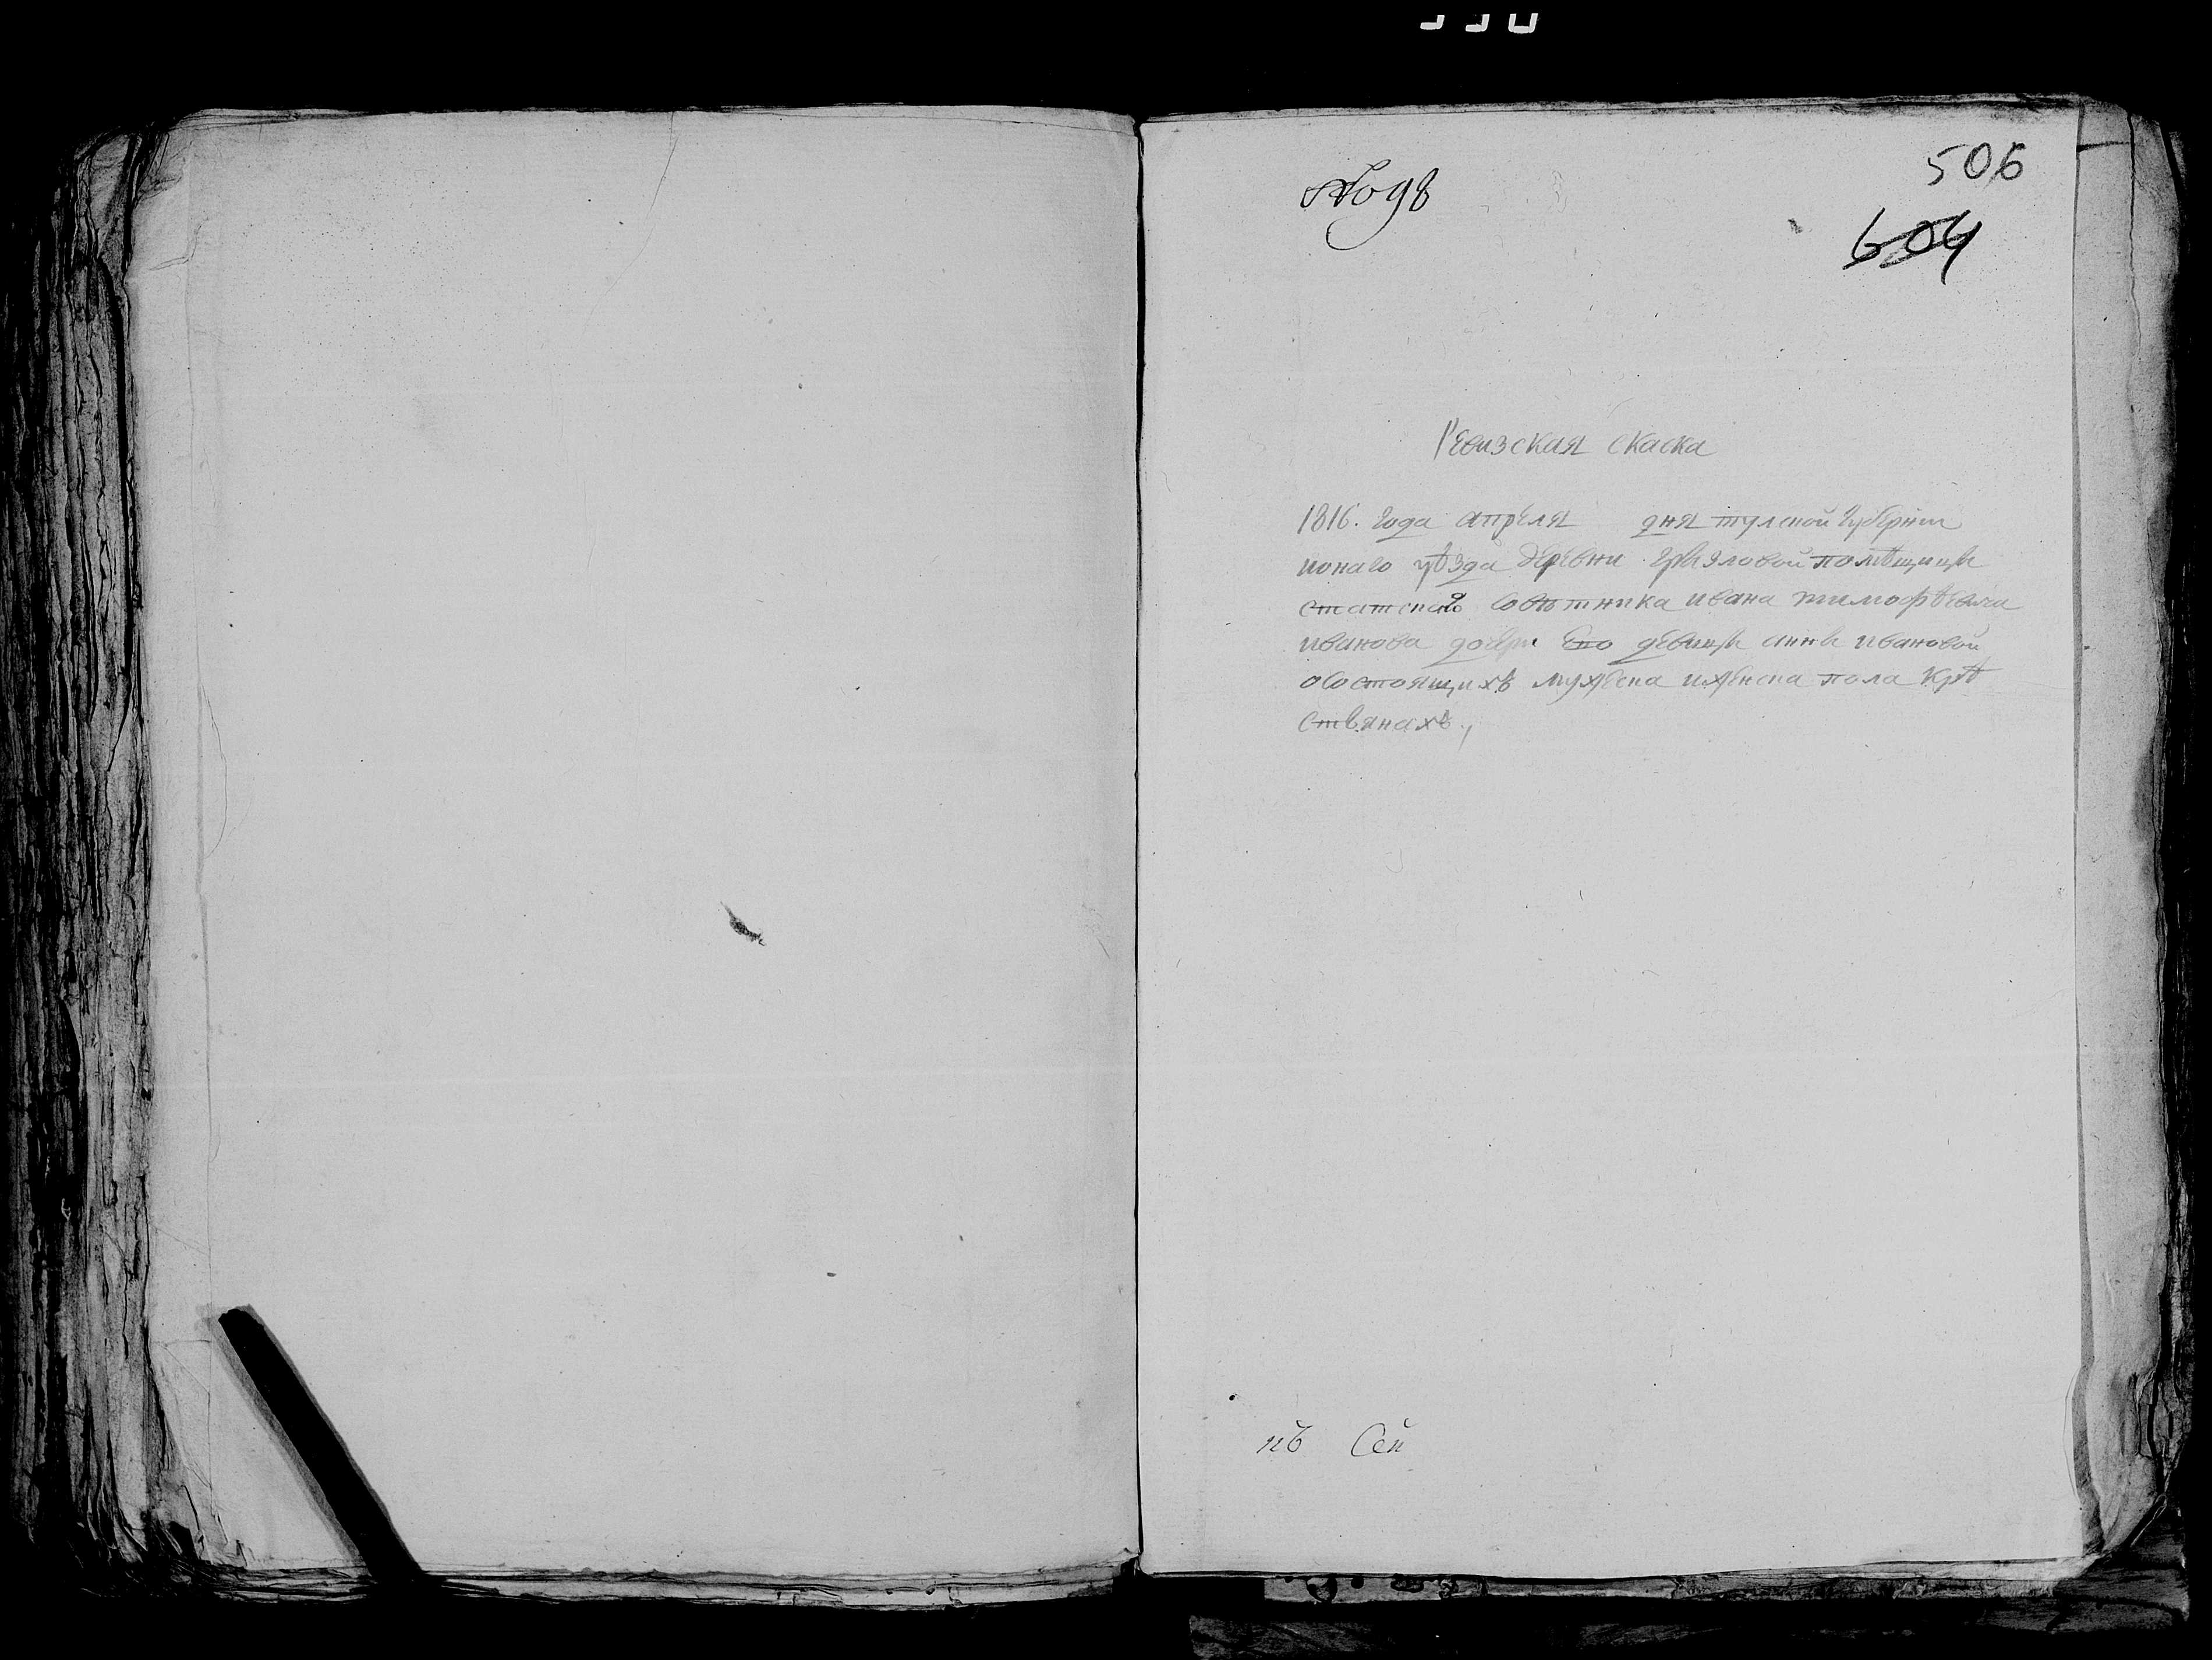 № 98
506
604
Ревизская скаска
1816. года апреля дня тулской губернии
уѣзда деревни помѣщицы
статскаго совѣтника ивана тимофѣевича
иванова дочери ево девицы анны ивановой
осостоящихъ мужеска иженска пола крѣ
стьянахъ,